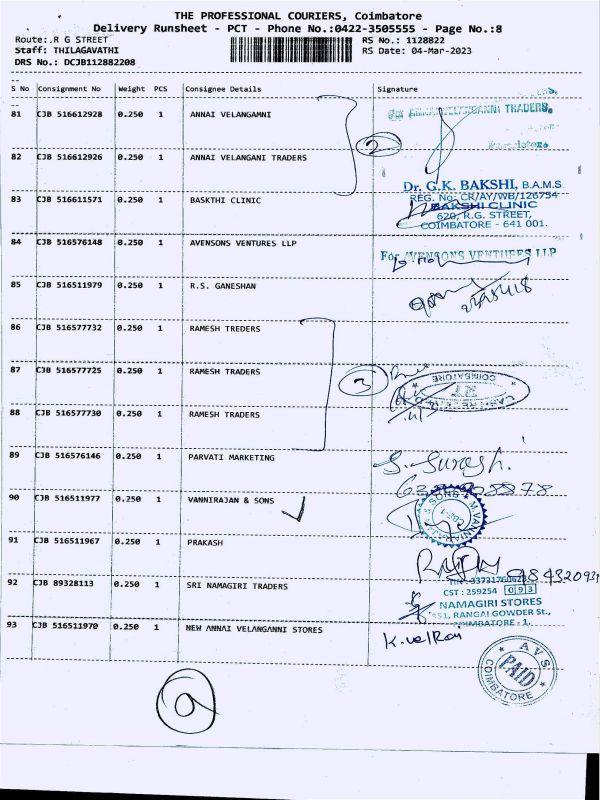 THE PROFESSIONAL COURIERS, Coimbatore
Delivery Runsheet - PCT - Phone No.:0422-3505555 - Page No.:8
Route:.R G STREET RS No.: 1128822
Staff: THILAGAVATHI RS Date: 04-Mar-2023
DRS No.: DCJB112882208
S No Consignment No Weight PCS Consignee Details Signature
81 CJB 516612928 0.250 1 ANNAI VELANGAMNI
TRADERS.
2
82 CJB 516612926 0.250 1 ANNAI VELANGANI TRADERS
Dr. G.K. BAKSHI, B.A.M.S
83 CJB 516611571 0.250 1 BASKTHI CLINIC REG. No: CR/AY/WB/126754
BAKSHI CLINIC
620, R.G. STREET,
COIMBATORE - 641 001.
84 CJB 516576148 0.250 1 AVENSONS VENTURES LLP
For AVENSONS VENTURES LLP
85 CJB 516511979 0.250 1 R.S. GANESHAN
86 CJB 516577732 0.250 1 RAMESH TREDERS
87 CJB 516577725 0.250 1 RAMESH TRADERS
3
COIMBATORE
88 CJB 516577730 0.250 1 RAMESH TRADERS
89 CJB 516576146 0.250 1 PARVATI MARKETING S. Suresh.
90 CJB 516511977 0.250 1 VANNIRAJAN & SONS
CBE-1
91 CJB 516511967 0.250 1 PRAKASH
92 CJB 89328113 0.250 1 SRI NAMAGIRI TRADERS
CST : 259254 093
NAMAGIRI STORES
351, RANGAI GOWDER St.,
COIMBATORE - 1.
93 CJB 516511970 0.250 1 NEW ANNAI VELANGANNI STORES K.velRan
AVS
PAID
COIMBATORE